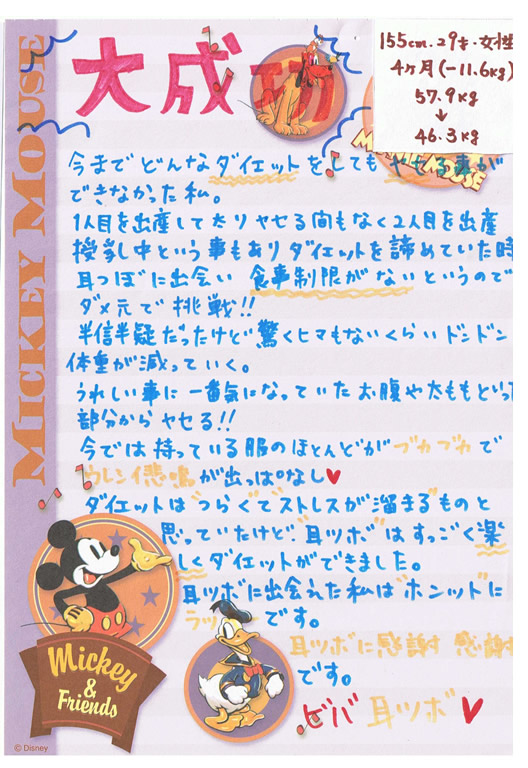 大成功
155cm・29才・女性
4ヶ月(-11.6kg)
57.9kg
↓
46.3kg
MICKEY MOUSE
MINNIE MOUSE
今までどんなダイエットをしてもやせる事が
できなかった私。
1人目を出産して太りヤセる間もなく2人目を出産
授乳中という事もありダイエットを諦めていた時
耳つぼに出会い 食事制限がないというので
ダメ元で挑戦!!
半信半疑だったけど驚くヒマもないくらいドンドン
体重が減っていく。
うれしい事に一番気になっていたお腹や太ももといっ
部分からヤセる!!
今では持っている服のほとんどがブカブカで
ウレシイ悲鳴が出っぱなし♥
ダイエットは"つらくて""ストレスが溜まる"ものと
思っていたけど"耳ツボ"はすっごく楽
しくダイエットができました。
耳ツボに出会えた私は"ホンット"に
ラッ
です。
耳ツボに感謝 感謝
です。
ビバ 耳ツボ ♥
Mickey
&
Friends
© Disney